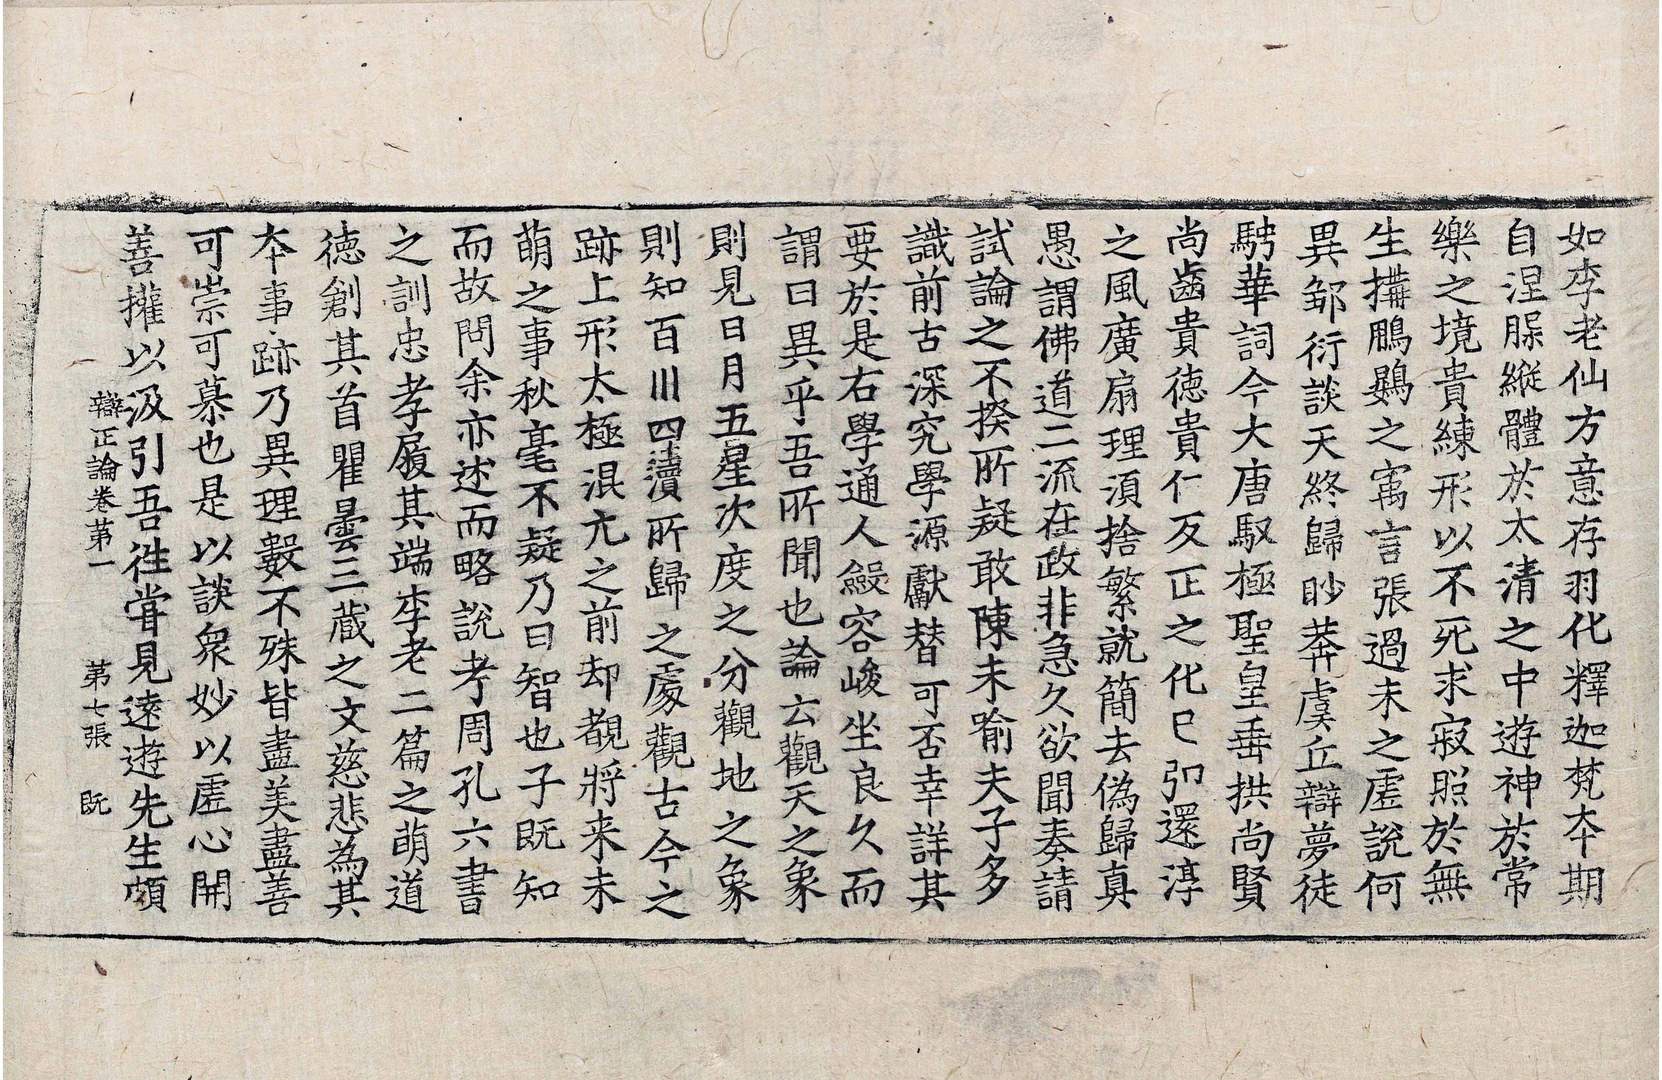 如李老仙方意存羽化釋迦梵夲期
自涅縱體於太清之中遊神於常
樂之境貴練形以不死求寂照於無
生搆鵬鷃之寓言張過未之虛說何
異鄒衍談天終歸眇莽虞丘辯夢徒
騁華詞今大唐馭極聖皇垂拱尚賢
尚齒貴徳貴仁反正之化已弘還淳
之風廣扇理湏捨繁就簡去偽歸真
愚謂佛道二流在政非急久欲聞奏請
試論之不揆所疑敢陳未喻夫子多
識前古深究學源獻替可否幸詳其
要於是右學通人斂容峻坐良久而
謂曰異乎吾所聞也論云觀天之象
則見日月五星次度之分觀地之象
則知百川四瀆所歸之處觀古今之
跡上形太極混元之前却覩將来未
萌之事秋毫不疑乃曰智也子既知
而故問余亦述而略說考周孔六書
之訓忠孝履其端李老二篇之萌道
徳創其首瞿曇三藏之文慈悲為其
夲事跡乃異理數不殊皆盡美盡善
可崇可慕也是以談衆妙以虛心開
善權以汲引吾徃甞見遠遊先生頗
辯正論卷苐一 苐七張 既